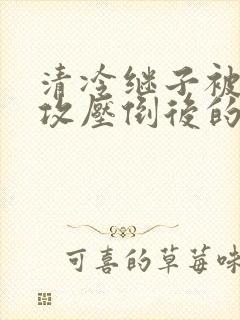 清冷继子被
攻壓倒後的
可喜的草莓味